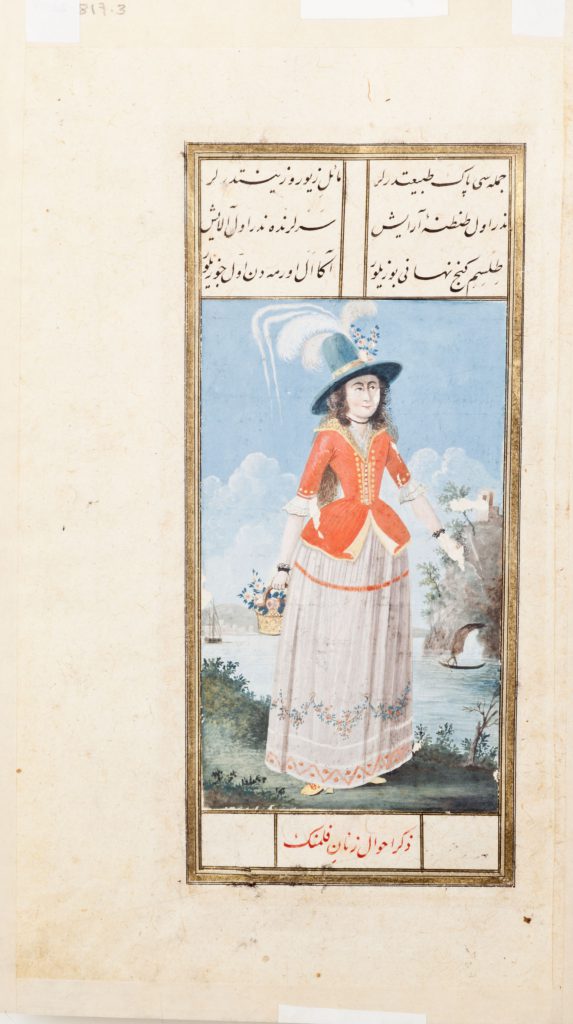 جمله سی پاک طبیعتدرلر مائل زیور و زینتدرلر
ندر اول طنطنهٔ آرایش سرلرنده ندر اول آلایش
طلسم کنج نهانی بوزیلور آکا ال اورمه دن اول چوزیلور
ذکر احوال زنان فلمنک